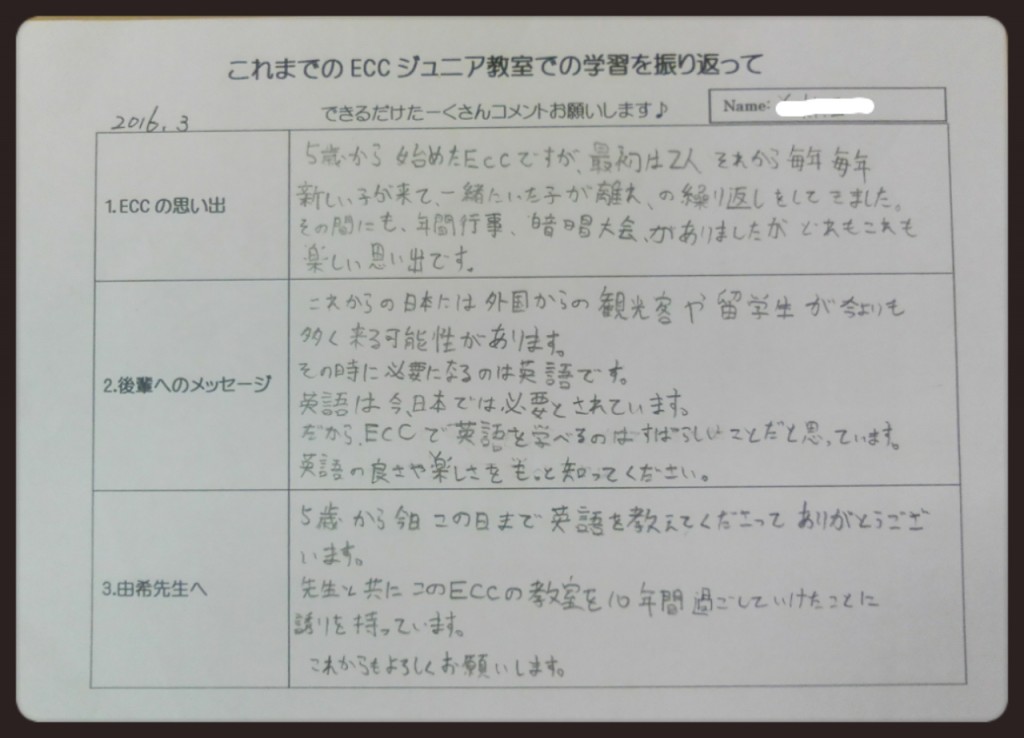 これまでの ECC ジュニア教室での学習を振り返って
できるだけたーくさんコメントお願いします♪
Name:
2016.3
1.ECC の思い出
5歳から始めたECCですが、最初は2人 それから毎年毎年
新しい子が来て、一緒にいた子が離れ、の繰り返しをしてきました。
その間にも、年間行事、暗唱大会、がありましたが どれもこれも
楽しい思い出です。
2.後輩へのメッセージ
これからの日本には外国からの観光客や留学生が今よりも
多く来る可能性があります。
その時に必要になるのは英語です。
英語は今、日本では必要とされています。
だから、ECCで英語を学べるのはすばらしいことだと思っています。
英語の良さや楽しさをもっと知ってください。
3.由希先生へ
5歳から今日この日まで英語を教えてくださってありがとうござ
います。
先生と共にこのECCの教室を10年間過ごしていけたことに
誇りを持っています。
これからもよろしくお願いします。